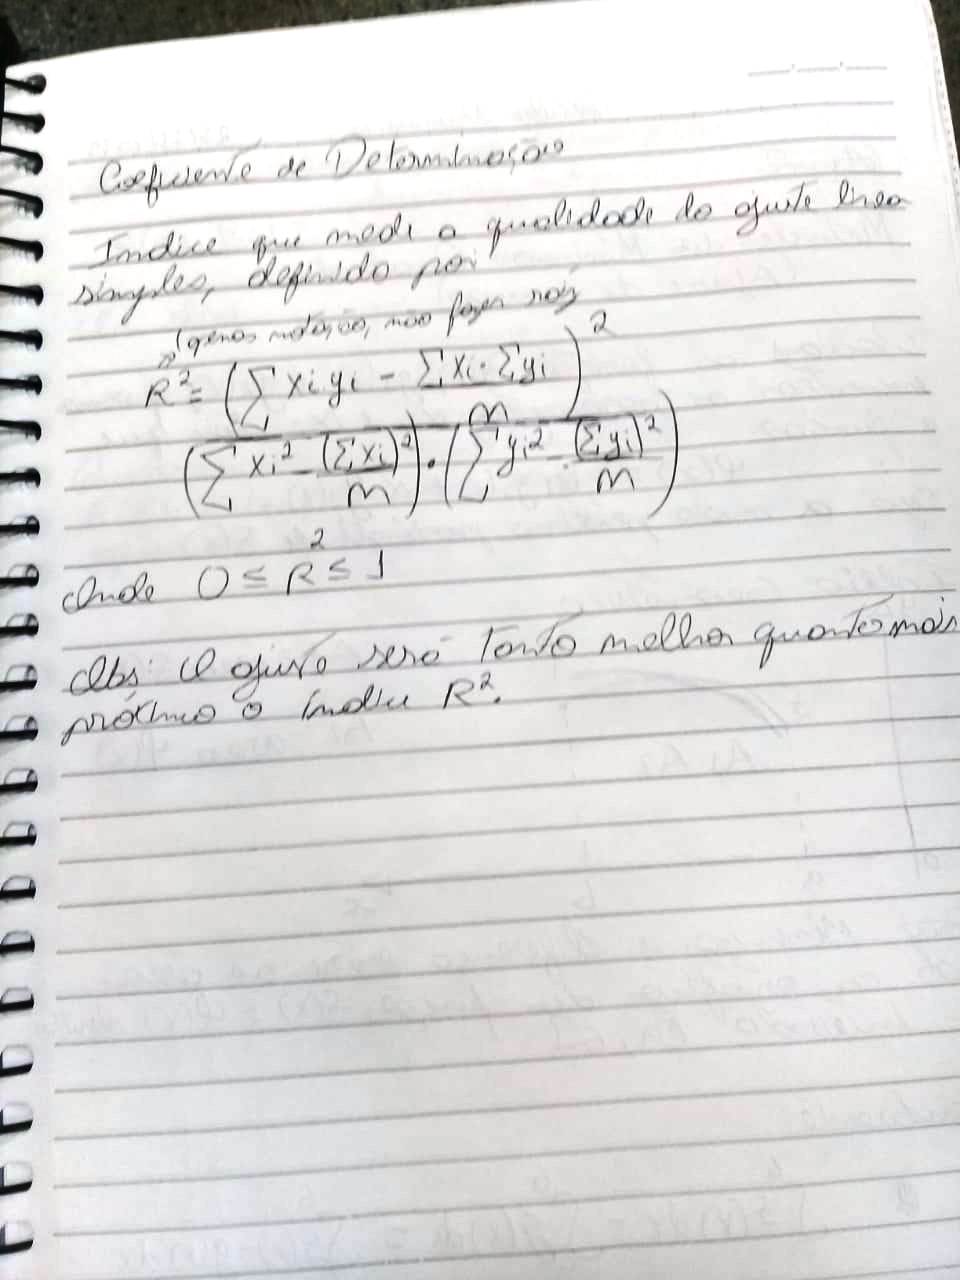 Coeficiente de Determinação
Indice que mede a qualidade do ajuste linea
simples, definido por
(apenas notação, não fazer raiz
R² = (Σ xi yi - Σ xi . Σ yi / m)²
(Σ xi² - (Σ xi)² / m) . (Σ yi² - (Σ yi)² / m)
Onde 0 ≤ R² ≤ 1
Obs: O ajuste será tanto melhor quanto mais
próximo o índice R².